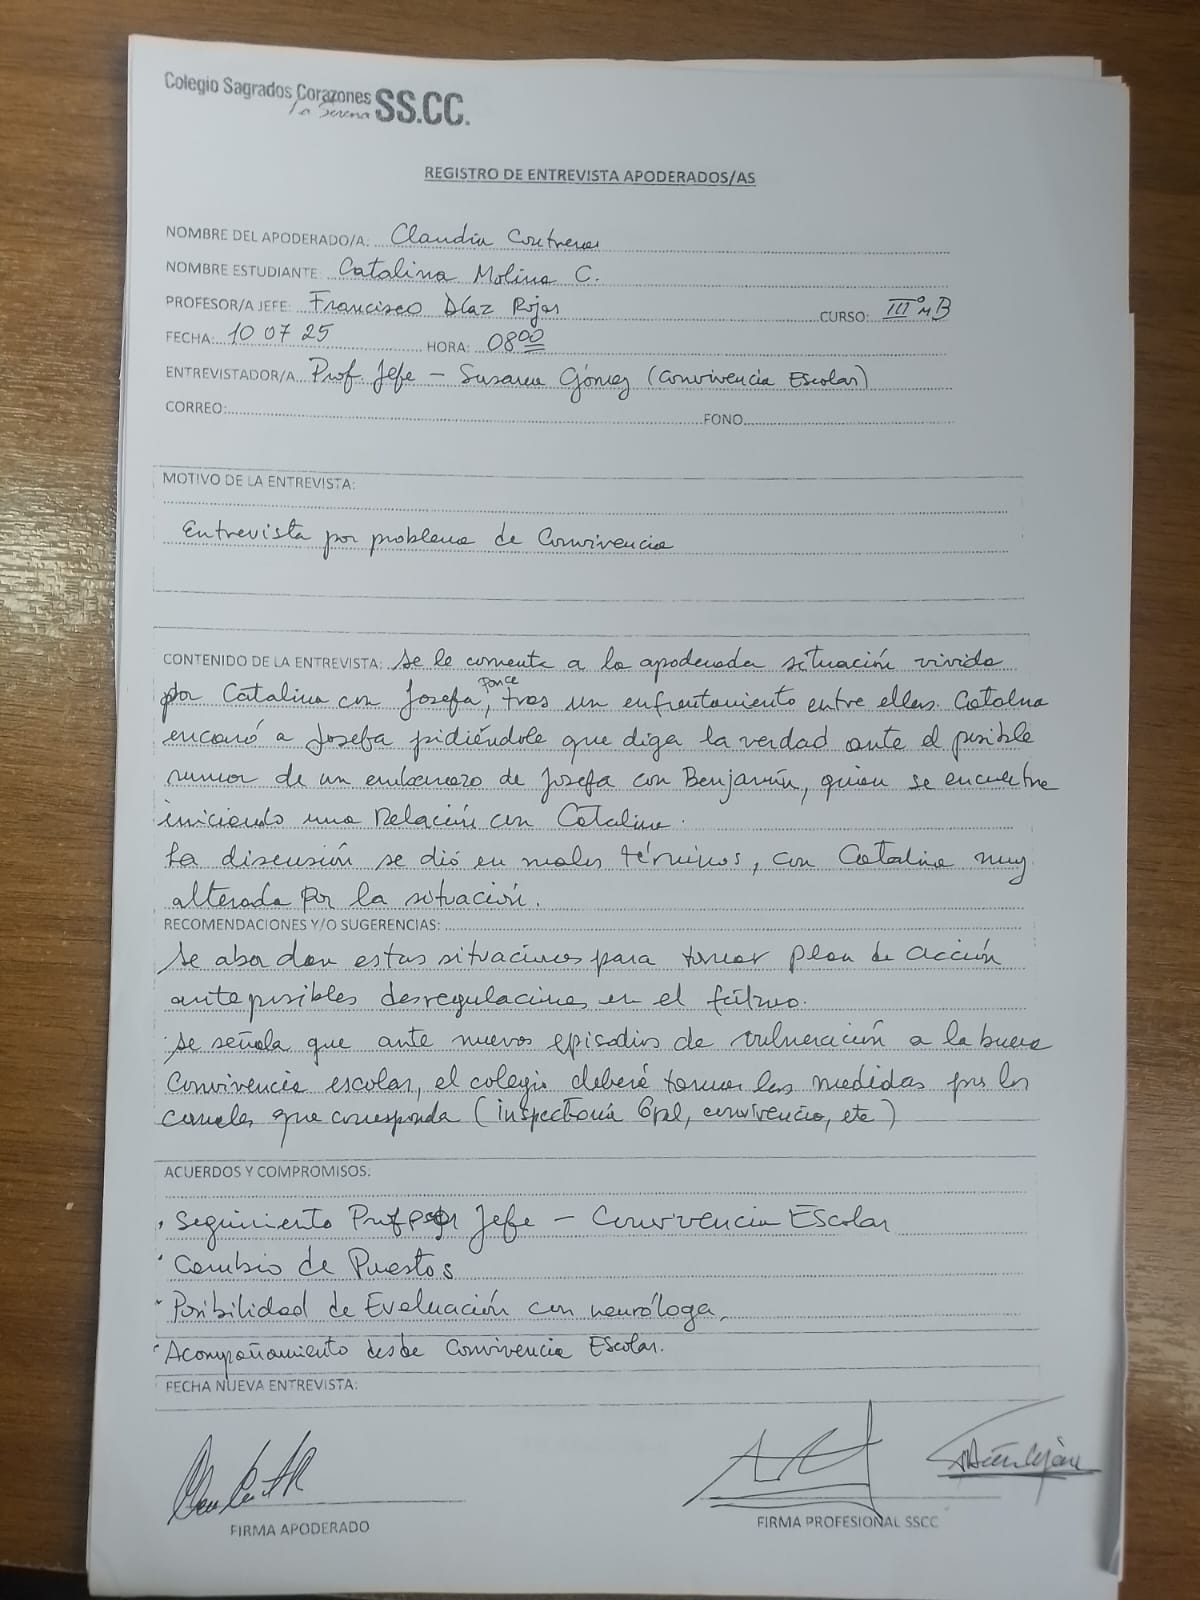 Colegio Sagrados Corazones SS.CC.
La Serena
REGISTRO DE ENTREVISTA APODERADOS/AS
NOMBRE DEL APODERADO/A: Claudia Contreras
NOMBRE ESTUDIANTE: Catalina Molina C.
PROFESOR/A JEFE: Francisco Díaz Rojas CURSO: III° M B
FECHA: 10 07 25 HORA: 08 00
ENTREVISTADOR/A Prof Jefe – Susana Gómez (Convivencia Escolar)
CORREO: FONO
MOTIVO DE LA ENTREVISTA:
Entrevista por problema de Convivencia
CONTENIDO DE LA ENTREVISTA: Se le comenta a la apoderada situación vivida
por Catalina con Josefa Ponce, tras un enfrentamiento entre ellas. Catalina
encaró a Josefa pidiéndole que diga la verdad ante el posible
rumor de un embarazo de Josefa con Benjamín, quien se encuentra
iniciando una Relación con Catalina.
La discusión se dió en malos términos, con Catalina muy
alterada por la situación.
RECOMENDACIONES Y/O SUGERENCIAS:
Se abordan estas situaciones para tomar plan de acción
ante posibles desregulaciones en el futuro.
Se señala que ante nuevos episodios de vulneración a la buena
Convivencia escolar, el colegio deberá tomar las medidas por los
canales que corresponda (inspectoría Gral, convivencia, etc)
ACUERDOS Y COMPROMISOS:
· Seguimiento Profesor Jefe – Convivencia Escolar
· Cambio de Puestos
· Posibilidad de Evaluación con neuróloga
· Acompañamiento desde Convivencia Escolar.
FECHA NUEVA ENTREVISTA:
FIRMA APODERADO
FIRMA PROFESIONAL SSCC